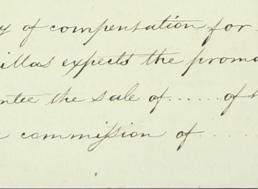 y of compensation for
illas expects the promo
ntee the sale of ..... of t
commission of .....